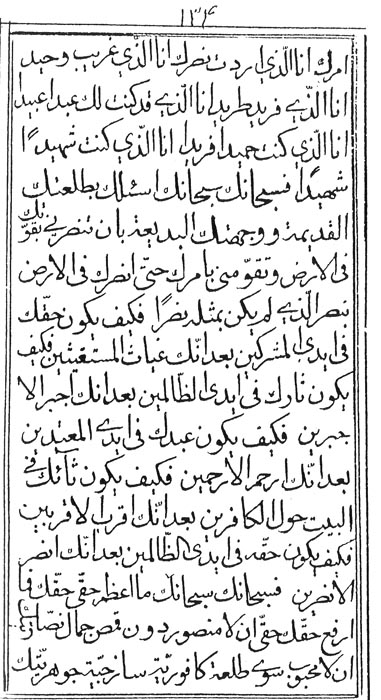 ١٣٤
امرك انا الّذي اردت نصرك انا الّذي غريب وحيد
انا الّذي فريد طريد انا الّذي قد كنت لك عبدا عبيدا
انا الّذي كنت حميدا فريدا انا الّذي كنت شهيدًا
شهيدًا فسبحانك سبحانك اسئلك بطلعتك
القديمة ووجهتك البديعة بان تنصرني بقوّتك
في الارض وتقوّمني بامرك حتّى انصرك في الارض
نصر الّذي لم يكن بمثله نصرًا فكيف يكون حقّك
في ايدي المشركين بعد انّك غياث المستغيثين فكيف
يكون ثارك في ايدي الظّالمين بعد انّك اجبر الا
جبرين فكيف يكون عبدك في ايدي المعتدين
بعد انّك ارحم الارحمين فكيف يكون ثآئك في
البيت حول الكافرين بعد انّك اقرب الاقربين
فكيف يكون حقّه في ايدي الظّالمين بعد انّك انصر
الانصرين فسبحانك سبحانك ما اعظم حقّي حقّك فما
ارفع حقّك حقّي ان لا منصور دون قمص جمال نصّارتك
ان لا محبوب سوى طلعة كافوريّة ساذجيّة جوهريّتك